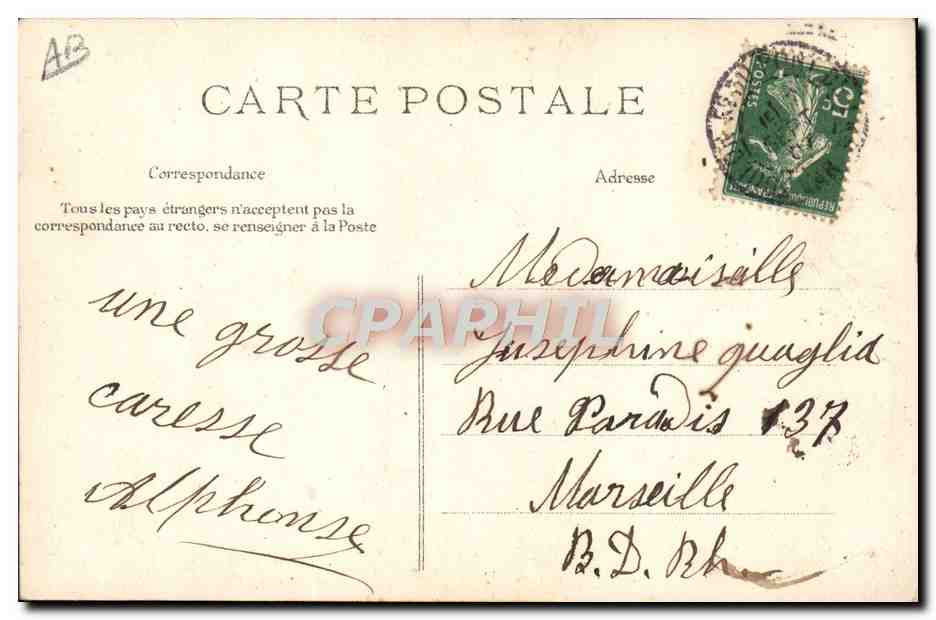 AB
CARTE POSTALE
Correspondance
Adresse
Tous les pays étrangers n'acceptent pas la
correspondance au recto, se renseigner à la Poste
une grosse
caresse
Alphonse
Medamoiselle
Josephine quaglia
Rue Paradis 137
Marseille
B. D. Rh
POSTES
5
REPUBLIQUE FRANÇAISE
CPAPHIL